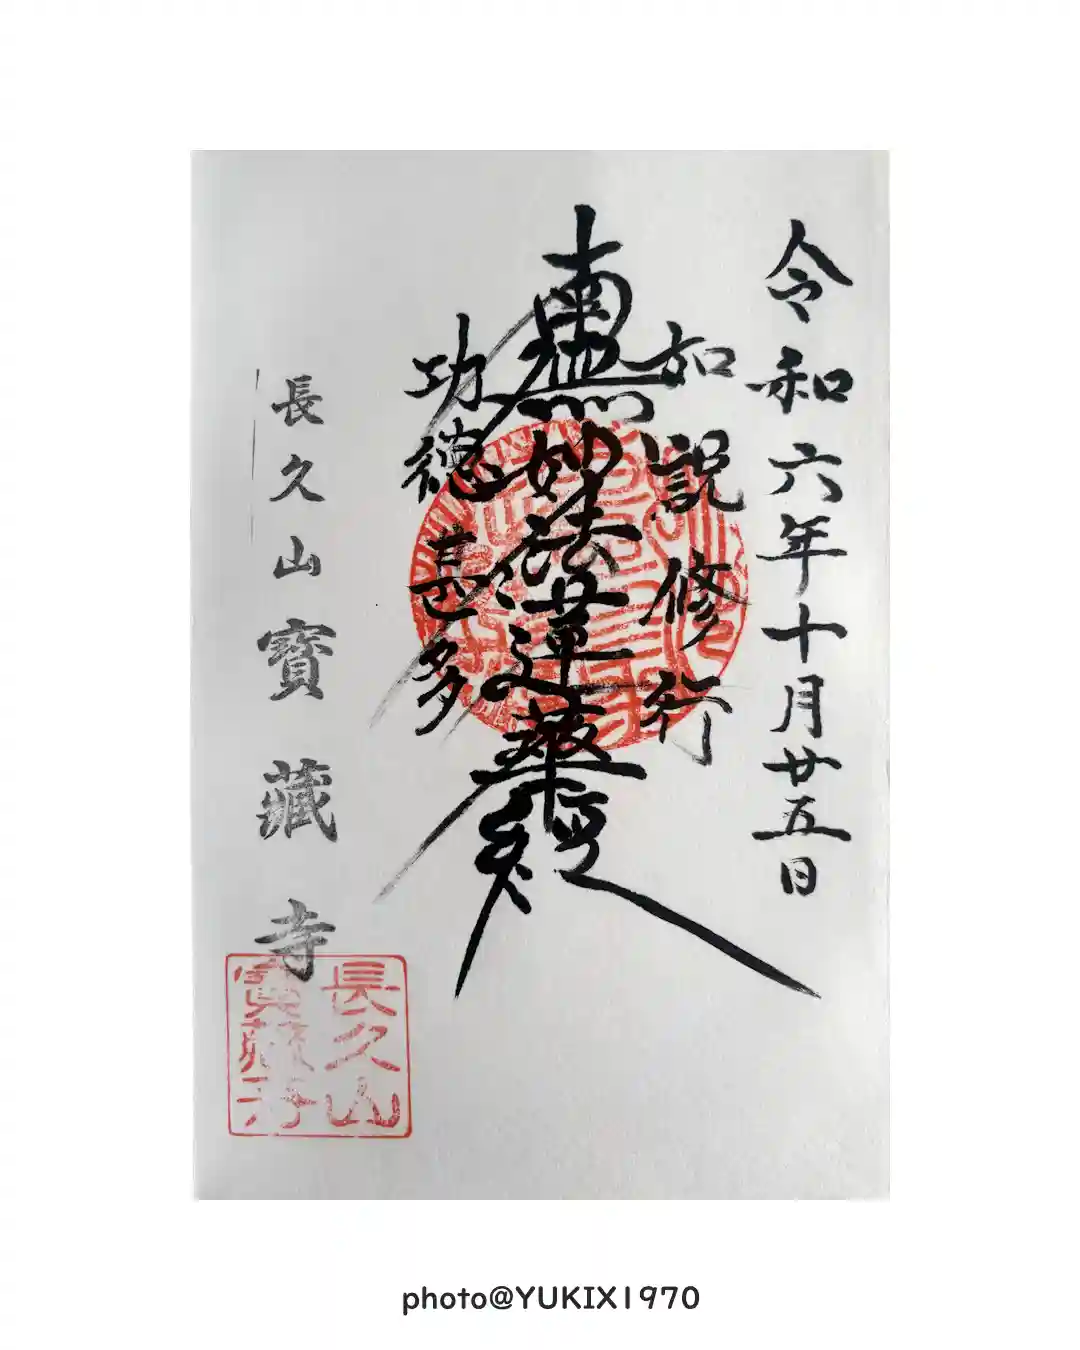 令和六年十月廿五日
如説修行
南無妙法蓮華経
功徳甚多
長久山寳藏寺
長久山
寳藏寺
photo@YUKIX1970